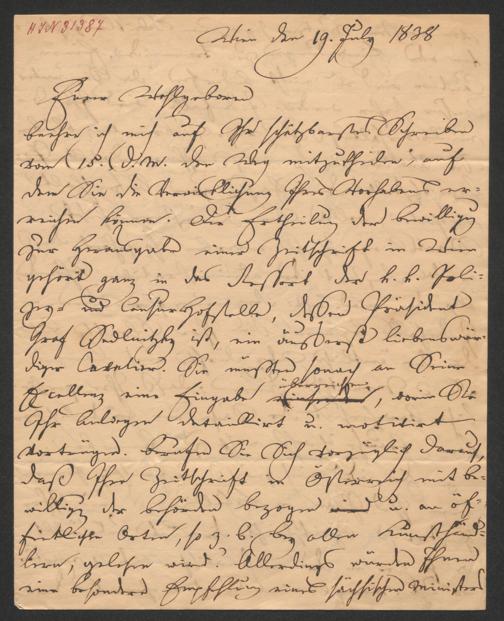 H.I.N. 31387
Wien den 19. July 1838
Euer Wohlgeboren
beehre ich mich auf Ihr schätzbarstes Schreiben
vom 15. d. M. den Weg mitzutheilen, auf
dem Sie die Verwirklichung Ihres Vorhabens er-
reichen können. Die Ertheilung der Bewilligung
zur Herausgabe einer Zeitschrift in Wien
gehört ganz in das Ressort der k. k. Poli-
zey- und Censurhofstelle, dessen Präsident
Graf Sedlnitzky ist, ein äußerst liebenswür-
diger Cavalier. Sie müßten sonach an Seine
Excellenz eine Eingabe überreichen, worin Sie
Ihr Anliegen detaillirt u. motivirt
vortrügen. Berufen Sie Sich vorzüglich darauf,
daß Ihre Zeitschrift in Österreich mit Be-
willigg der Behörden bezogen u. an öf-
fentlichen Orten, so z. b. bey allen Kunsthänd-
lern, gelesen wird. Allerdings würden Ihnen
eine besondere Empfehlung eines sächsischen Ministers